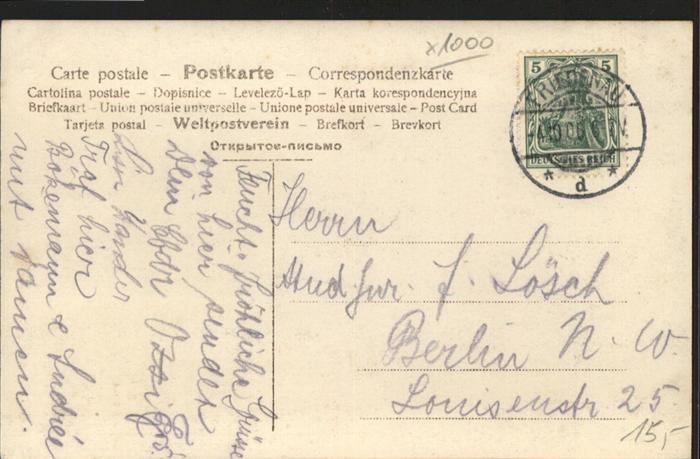 x1000
Carte postale – Postkarte – Correspondenzkarte
Cartolina postale – Dopisnice – Levelező-Lap – Karta korespondencyjna
Briefkaart – Union postale universelle – Unione postale universale – Post Card
Tarjeta postal – Weltpostverein – Brefkort – Brevkort
Открытое-письмо
5 5
DEUTSCHES REICH
FRIEDENAU
* d *
Feucht-fröhliche Grüsse
von hier sendet
Dein
Traf hier
Bökemann &
mit
Herrn
stud jur. f. Lösch
Berlin N. W.
Louisenstr 25.
15,-